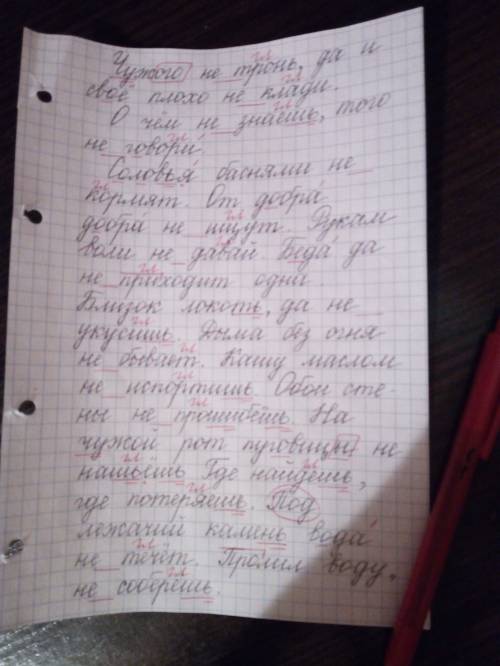 Чужого не тронь, да и
своё плохо не клади.
О чём не знаешь, того
не говори.
Соловья баснями не
кормят. От добра
добра не ищут. Рукам
воли не давай. Беда да
не приходит одни.
Близок локоть, да не
укусишь. Дыма без огня
не бывает. Кашу маслом
не испортишь. Обои сте-
ны не прошибёшь. На
чужой рот пуговицы не
нашьёшь. Где найдёшь,
где потеряешь. Под
лежачий камень вода
не течёт. Пролил воду,
не соберёшь.
гл гл гл гл гл гл гл гл гл гл гл гл гл гл гл гл гл